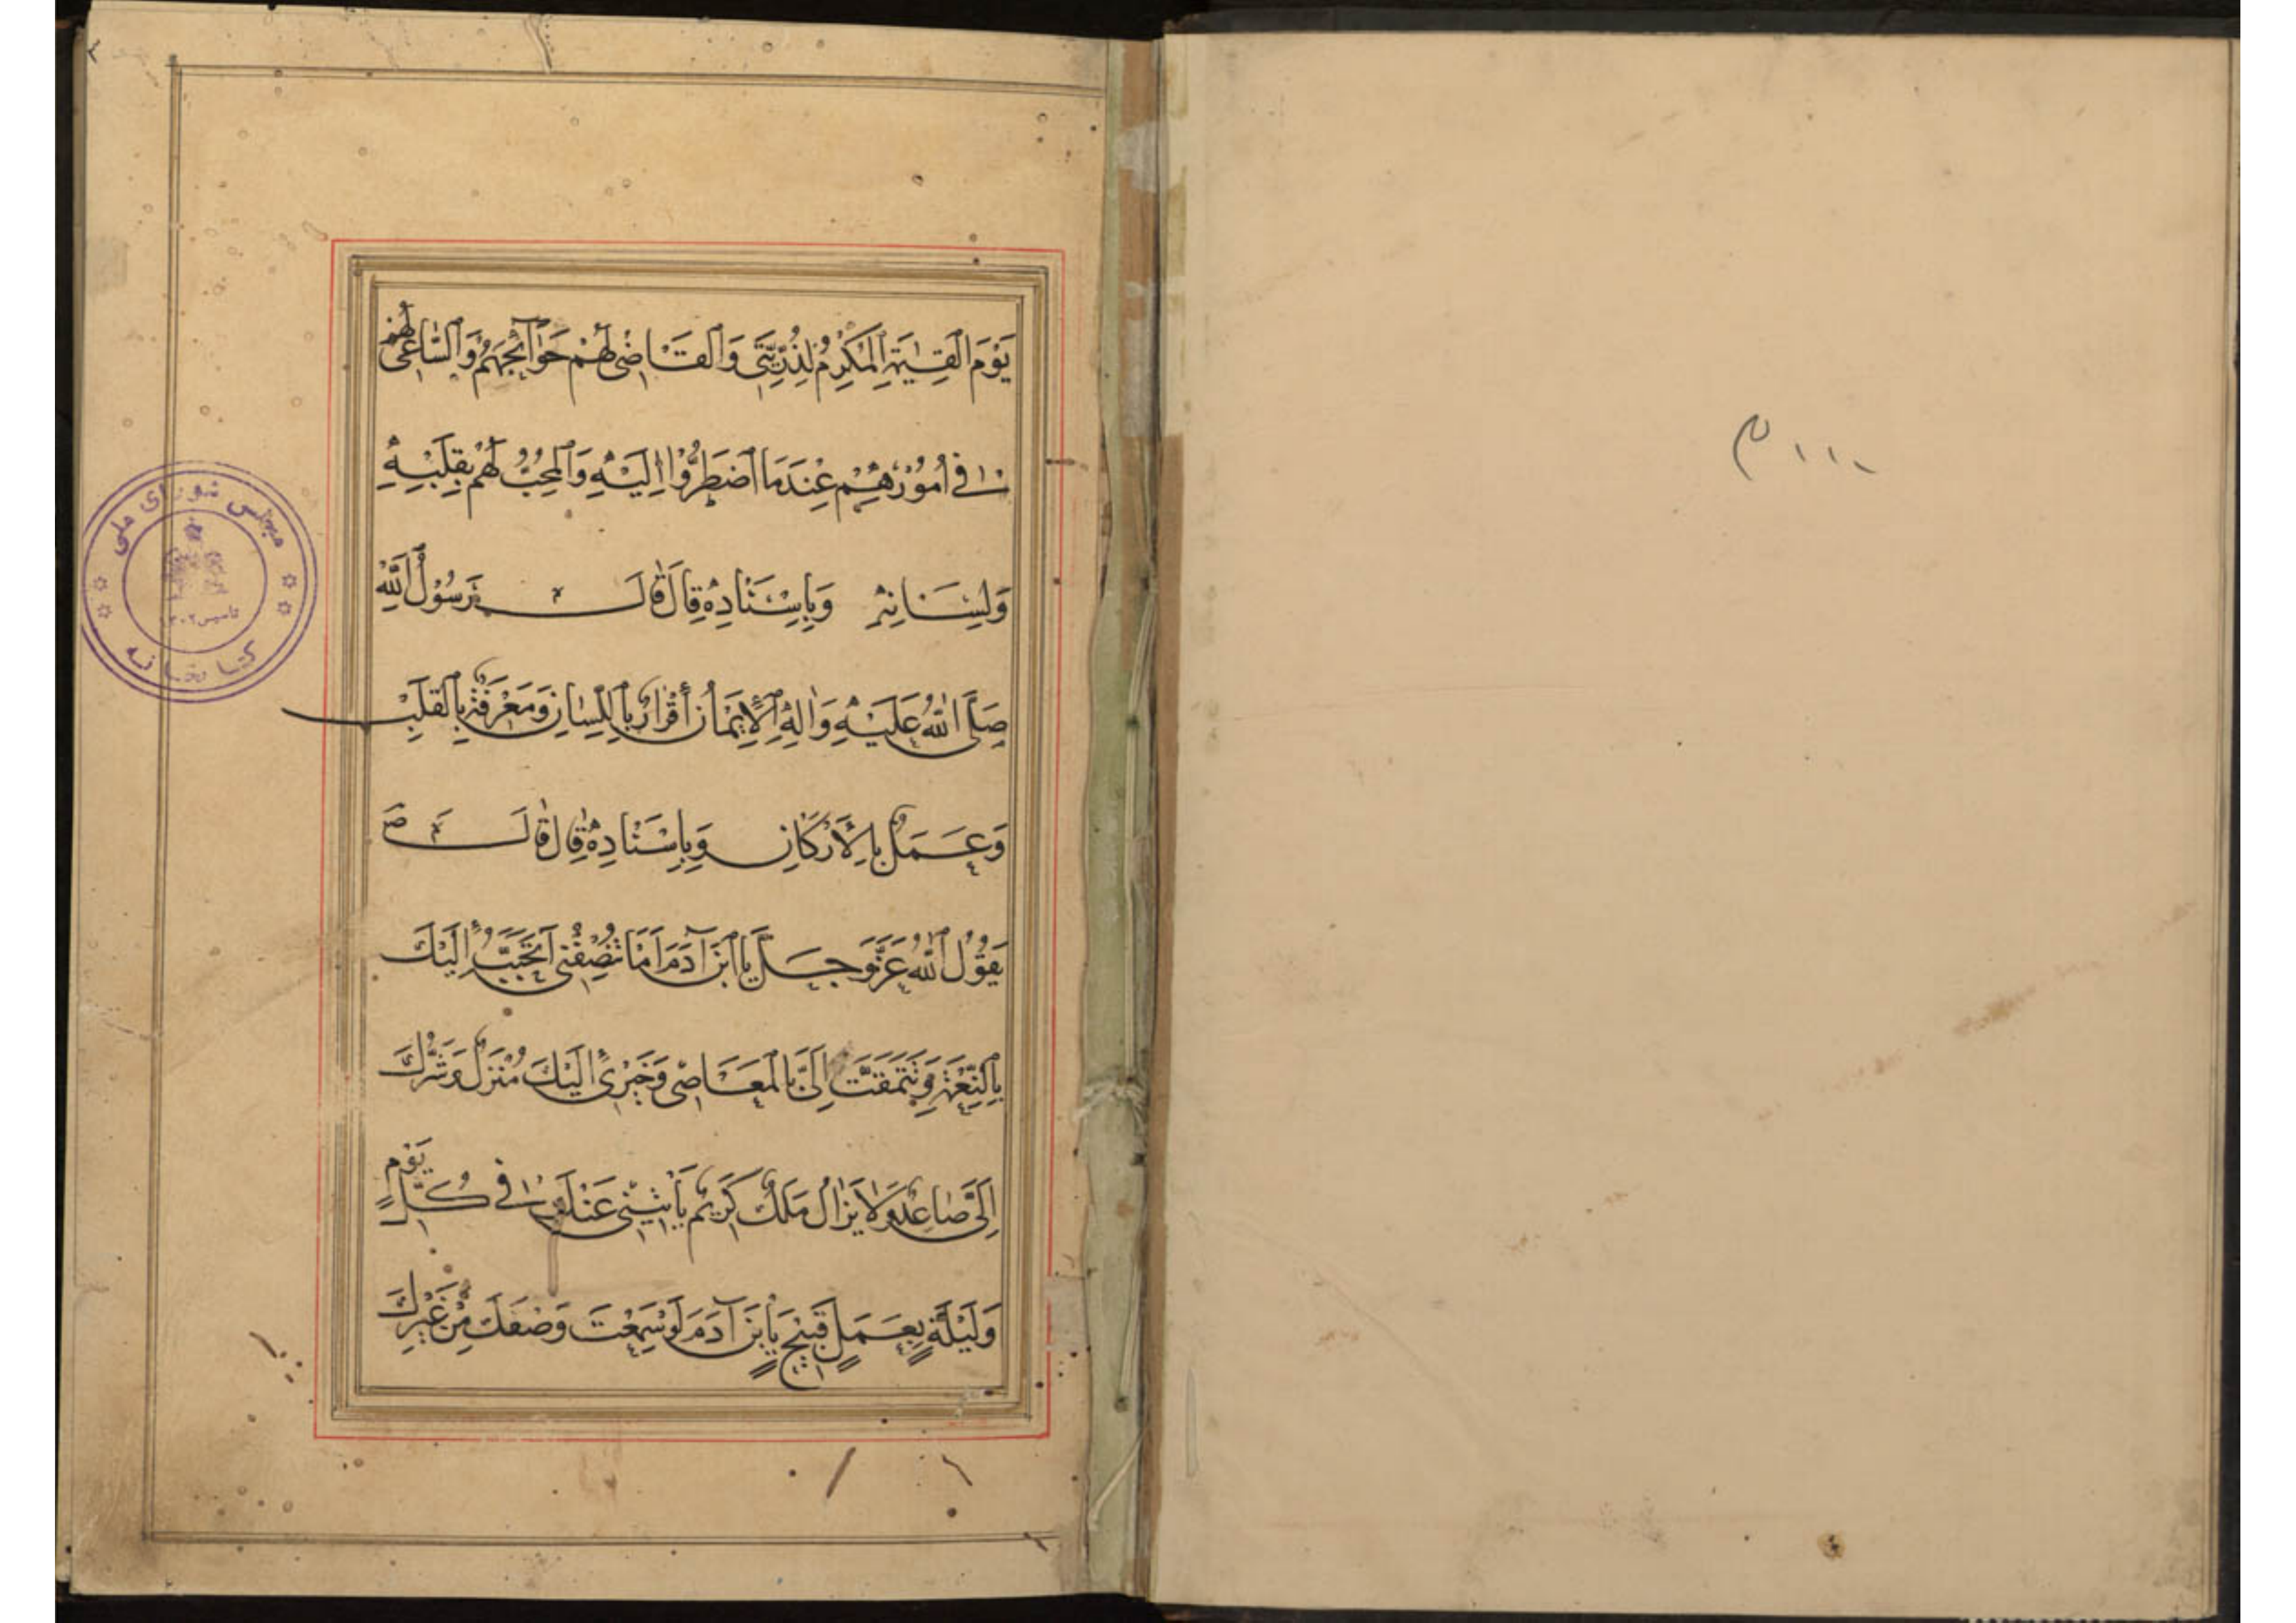 يَوْمَ الْقِيٰمَةِ الْمُكْرِمُ لِذُرِّيَّتِي وَالْقَاضِي لَهُمْ حَوَآئِجَهُمْ وَالسَّاعِي لَهُمْ
فِي أُمُوْرِهِمْ عِنْدَمَا اضْطَرُّوْا إِلَيْهِ وَالْمُحِبُّ لَهُمْ بِقَلْبِهِ
وَلِسَانِهِ وَبِإِسْنَادِهٖ قَالَ قَالَ رَسُوْلُ اللهِ
صَلَّى اللهُ عَلَيْهِ وَاٰلِهِ الْإِيْمَانُ أَقْرَارٌ بِاللِّسَانِ وَمَعْرِفَةٌ بِالْقَلْبِ
وَعَمَلٌ بِالْأَرْكَانِ وَبِإِسْنَادِهٖ قَالَ قَالَ صَ
يَقُوْلُ اللهُ عَزَّ وَجَلَّ يَا ابْنَ آدَمَ اَمَا تُنْصِفُنِي اَتَحَبَّبُ إِلَيْكَ
بِالنِّعْمَةِ وَتَتَمَقَّتُ إِلَيَّ بِالْمَعَاصِي وَخَيْرِي إِلَيْكَ مُنْزَلٌ وَشَرُّكَ
إِلَيَّ صَاعِدٌ وَلَا يَزَالُ مَلَكٌ كَرِيْمٌ يَأْتِيْنِي عَنْكَ فِي كُلِّ يَوْمٍ
وَلَيْلَةٍ بِعَمَلٍ قَبِيْحٍ يَا بْنَ آدَمَ لَوْ سَمِعْتَ وَصْفَكَ مِنْ غَيْرِكَ
مجلس شورای ملی
تاسیس ۱۳۰۲
کتابخانه